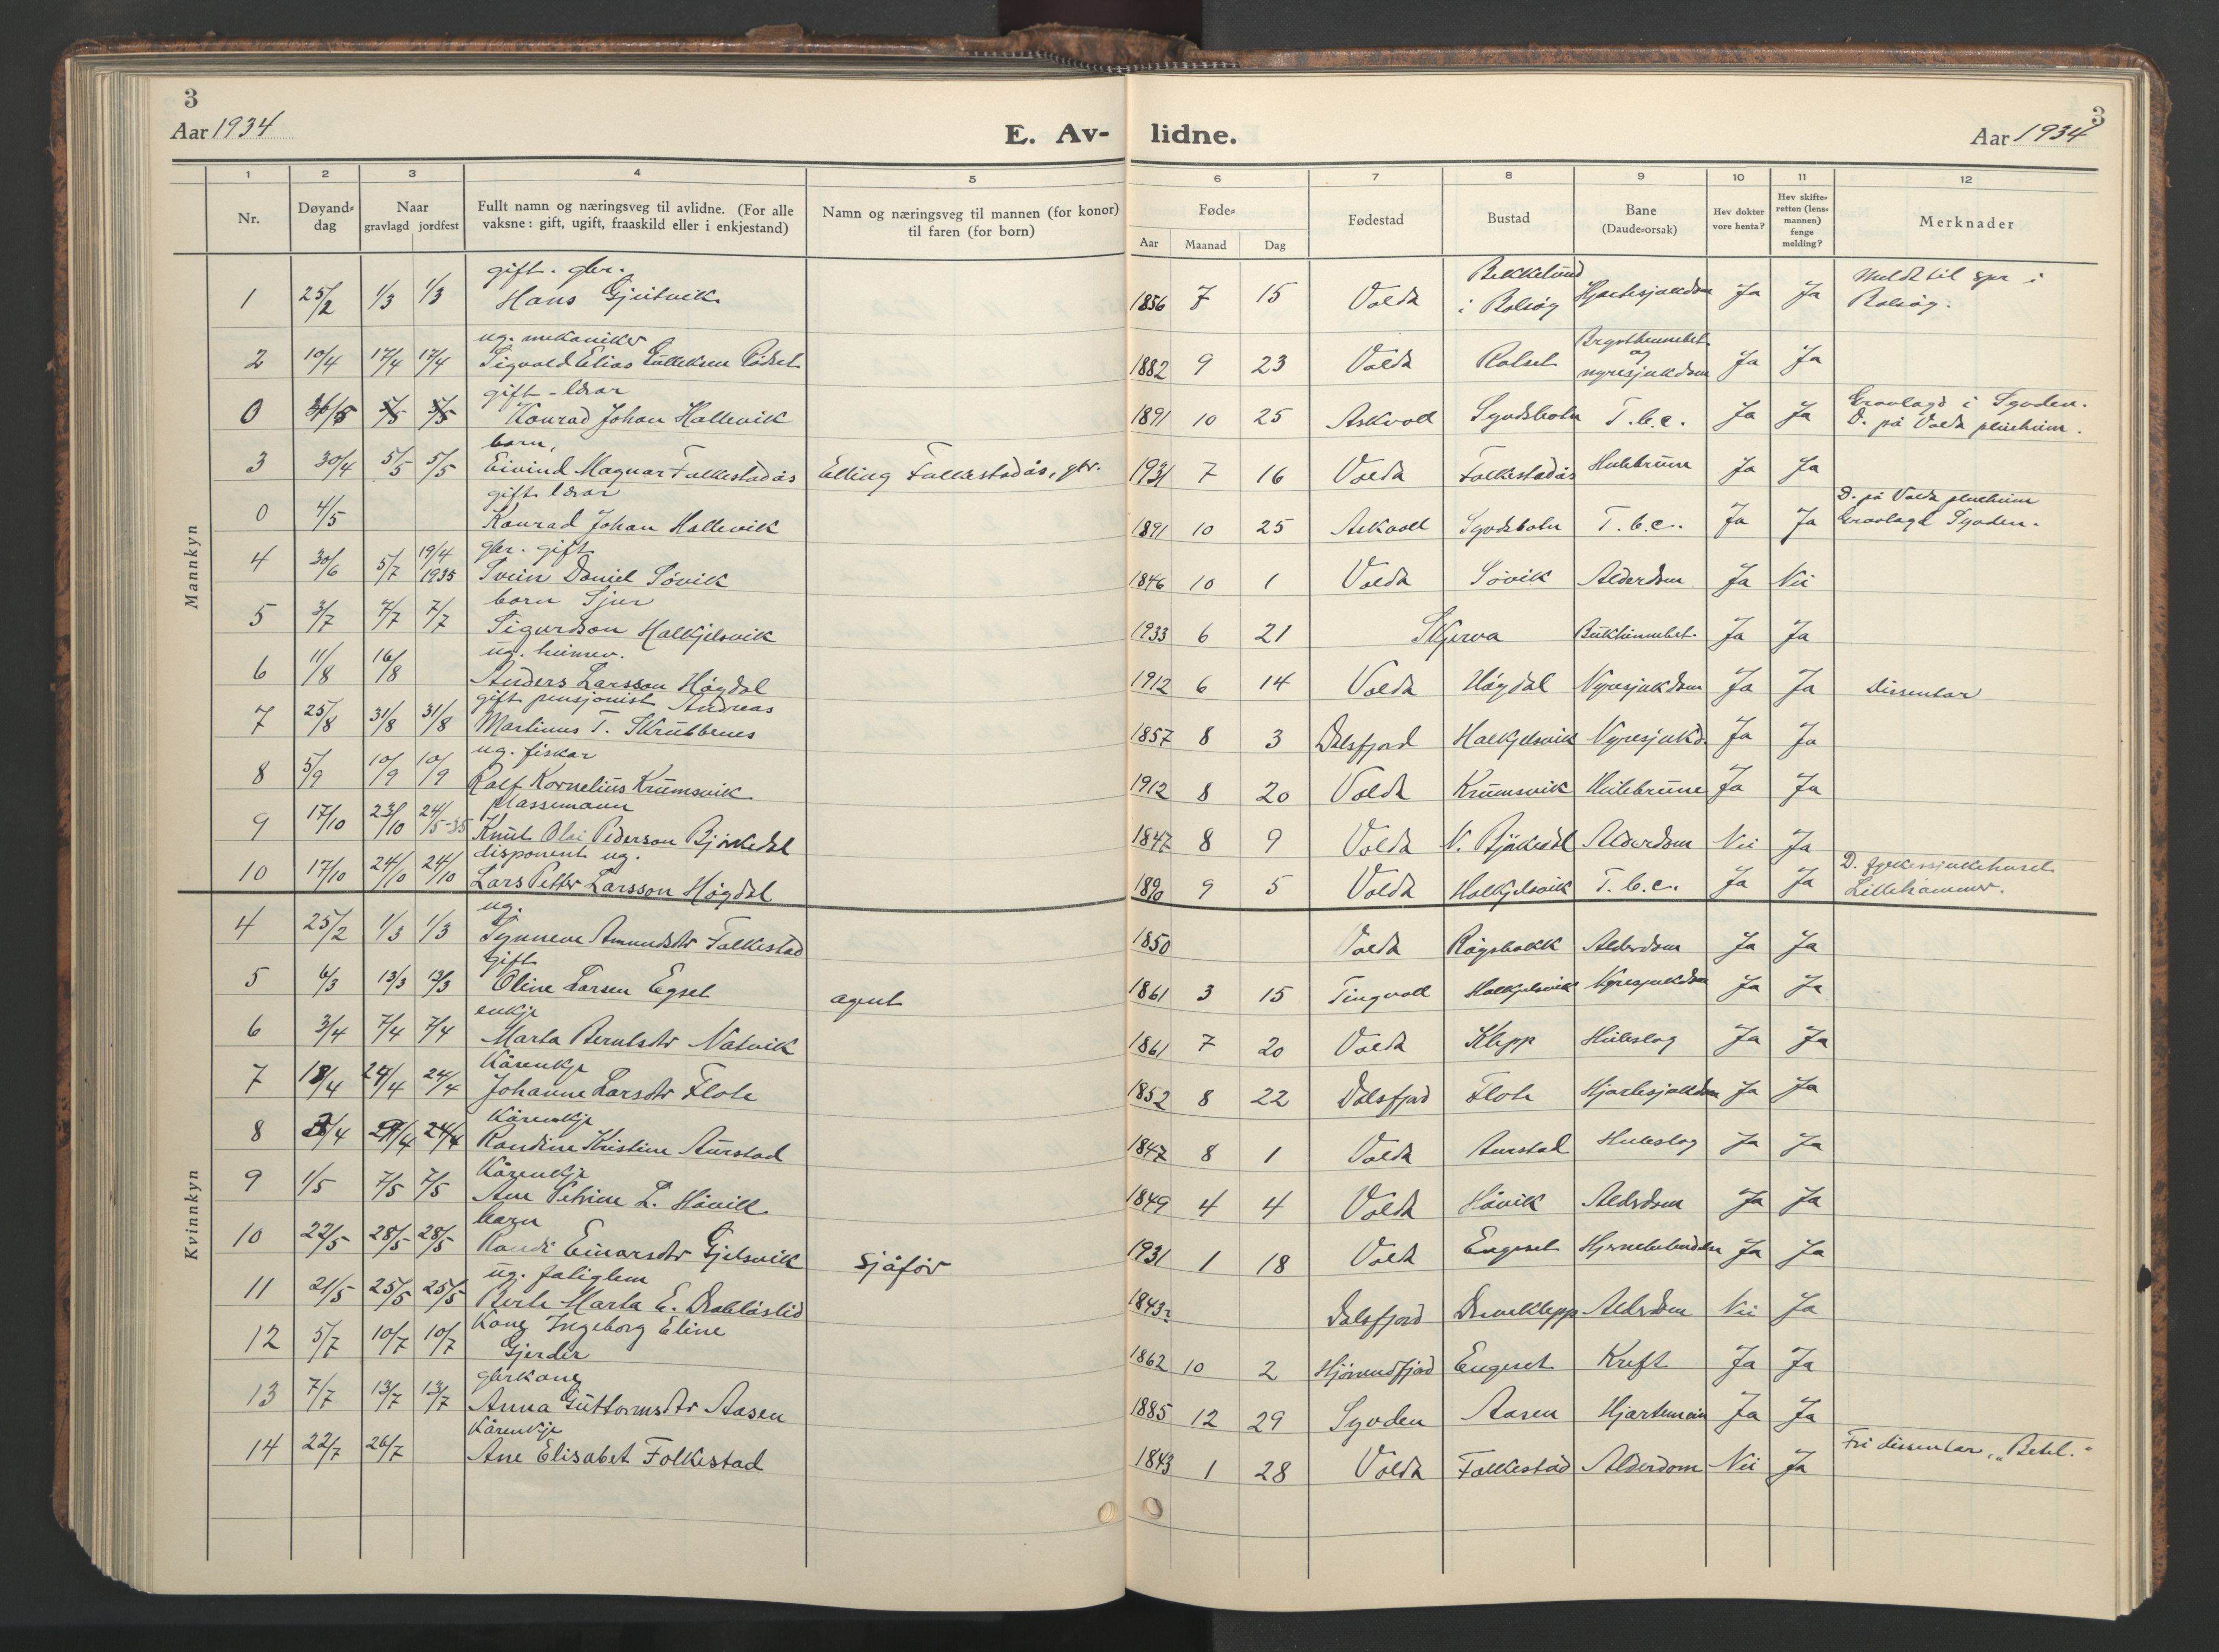 3
Aar 1934
E. Av-
lidne.
3
Aar 1934
1 2 3 4 5 6 7 8 9 10 11 12
Nr.
Døyand-
dag
Naar
gravlagd jordfest
Fullt namn og næringsveg til avlidne. (For alle
vaksne: gift, ugift, fraaskild eller i enkjestand)
Namn og næringsveg til mannen (for konor)
til faren (for born)
Føde-
Aar Maanad Dag
Fødestad
Bustad
Bane
(Daude-orsak)
Hev dokter
vore henta?
Hev skifte-
retten (lens-
mannen)
fenge
melding?
Merknader
Mannkyn
gift. gbr.
1 25/2 1/3 1/3 Hans 1856 7 15 Volda i Bolsøy Hjartesjukdom Ja Ja Meldt til spr i
Bolsøy.
ug. mekaniker
2 10/4 17/4 17/4 Sigvald Elias 1882 9 23 Volda Brysthinnebet. og nyresjukdom Ja Ja
gift - lærar
0 5/5 5/5 Konrad Johan Hallevik 1891 10 25 Askvoll T.b.c. Ja Ja Gravlagd i Syvden.
D. på Volda pleieheim.
born,
3 30/4 5/5 5/5 Eivind Magnar Folkestadås Elling Folkestadås, gbr. 1931 7 16 Volda Folkestadås Ja Ja
gift lærar
0 4/5 Konrad Johan Hallevik 1891 10 25 Askvoll T.b.c. Ja Ja D. på Volda pleieheim
Gravlagd Syvden.
gbr. gift
4 30/6 5/7 19/4 1935 Svein Daniel Søvik 1846 10 1 Volda Søvik Alderdom Ja Nei
born Sjur
5 3/7 7/7 7/7 Sigurdson Halkjelsvik 1933 6 21 Skjerva Bukhinnebet. Ja Ja
ug. heimev.
6 11/8 16/8 Anders Larsson Høydal 1912 6 14 Volda Høydal Nyresjukdom Ja Ja dissentar
gift pensjonist Andreas
7 25/8 31/8 31/8 Martinus T. Skrubbenes 1857 8 3 Dalsfjord Halkjelsvik Nyresjukd. Ja Ja
ug. fiskar
8 5/9 10/9 10/9 Rolf Kornelius Krumsvik 1912 8 20 Volda Krumsvik Ja Ja
plassemann
9 17/10 23/10 24/5-35 Knut Olai Pederson Bjørkedal 1847 8 9 Volda N. Bjørkedal Alderdom Nei Ja
disponent ug.
10 17/10 24/10 24/10 Lars Petter Larsson Høydal 1890 9 5 Volda Halkjelsvik T.b.c. Ja Ja D. fylkessjukehuset
Lillehammer.
Kvinnkyn
ug.
4 25/2 1/3 1/3 Synneve Amundsdtr Folkestad 1850 Volda Alderdom Ja Ja
gift
5 6/3 13/3 13/3 Oline Larsen Egset agent 1861 3 15 Tingvoll Halkjelsvik Nyresjukdom Ja Ja
enkje
6 3/4 7/4 7/4 Marta Berntsdtr Natvik 1861 7 20 Volda Klepp Heileslag Ja Ja
Kårenkje
7 18/4 24/4 24/4 Johanne Larsdtr Flote 1852 8 22 Dalsfjord Flote Hjartesjukdom Ja Ja
Kårenkje
8 24/4 Randine Kristine Aurstad 1847 8 1 Volda Aurstad Heileslag Ja Ja
Kårenkje
9 1/5 7/5 7/5 Ane Petrine L. Håvik 1849 4 4 Volda Håvik Alderdom Ja Ja
barn
10 22/5 28/5 28/5 Randi Einarsdtr Gjelsvik sjåfør 1931 1 18 Volda Engeset Ja Ja
ug. fatiglem
11 21/5 25/5 25/5 Berte Marta E. Drabløslid 1843? Dalsfjord Alderdom Nei Ja
Kone Ingeborg Eline
12 5/7 10/7 10/7 Gjerder 1862 10 2 Hjørundfjord Engeset Kreft Ja Ja
gbrkone
13 7/7 13/7 13/7 Anna Guttormsdtr Aasen 1885 12 29 Syvden Aasen Ja Ja
Kårenkje
14 22/7 26/7 Ane Elisabet Folkestad 1843 1 28 Volda Folkestad Alderdom Nei Ja Fri dissentar, „Betel."